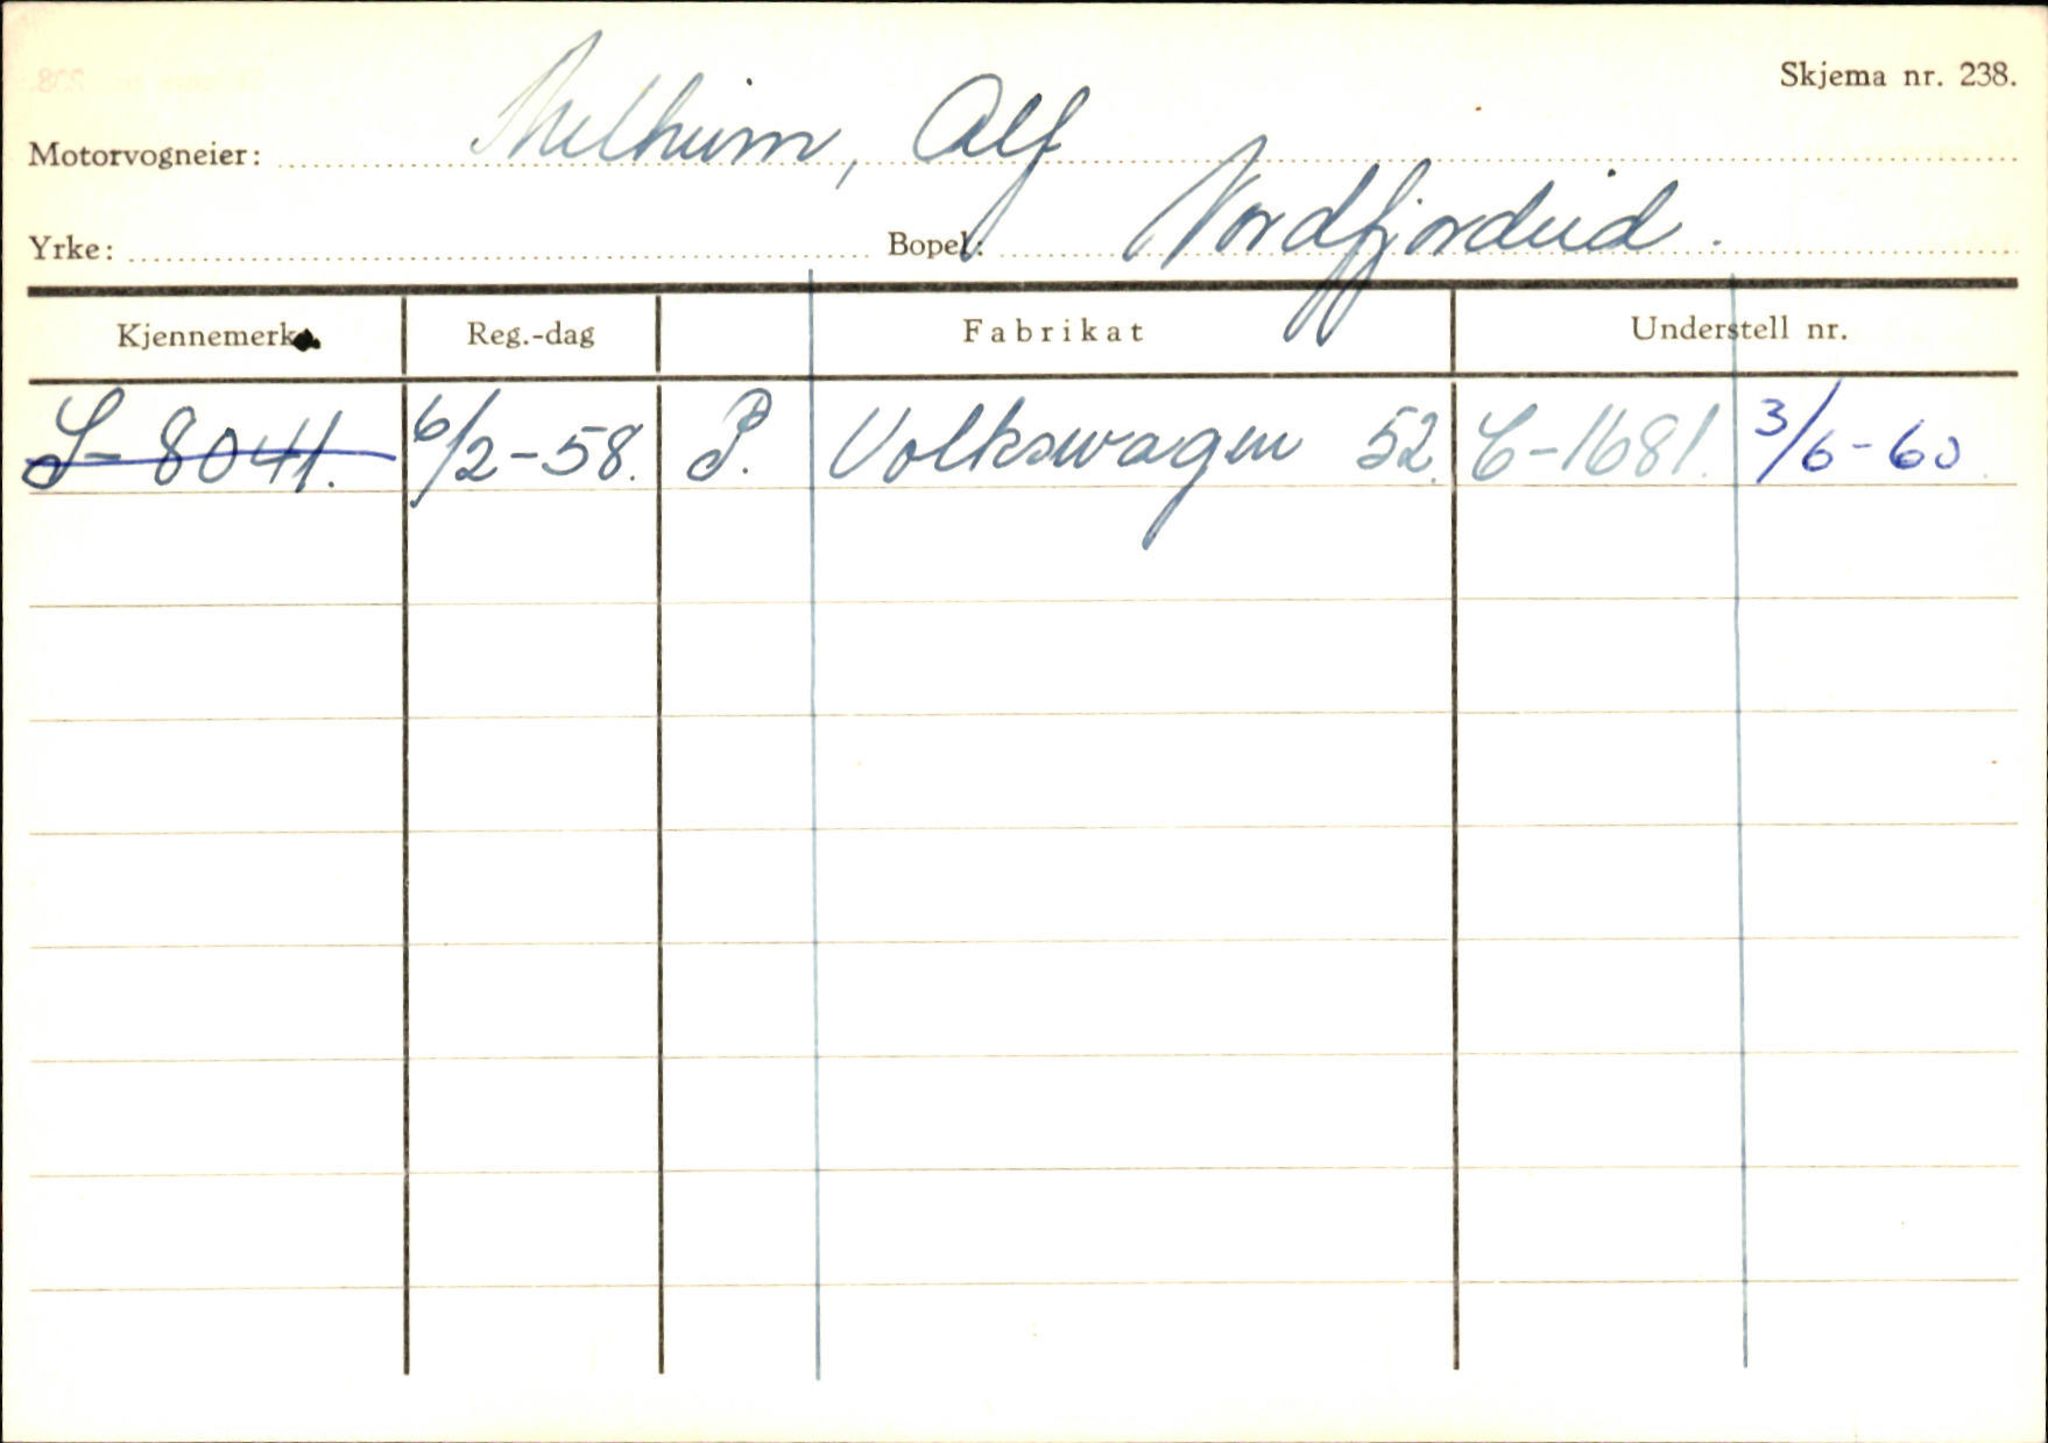 Skjema nr. 238.
Motorvogneier: Melheim, Alf
Yrke: Bopel: Nordfjordeid.
Kjennemerke Reg.-dag Fabrikat Understell nr.
S-8041. 6/2-58. P. Volkswagen 52. C-1681. 3/6-60